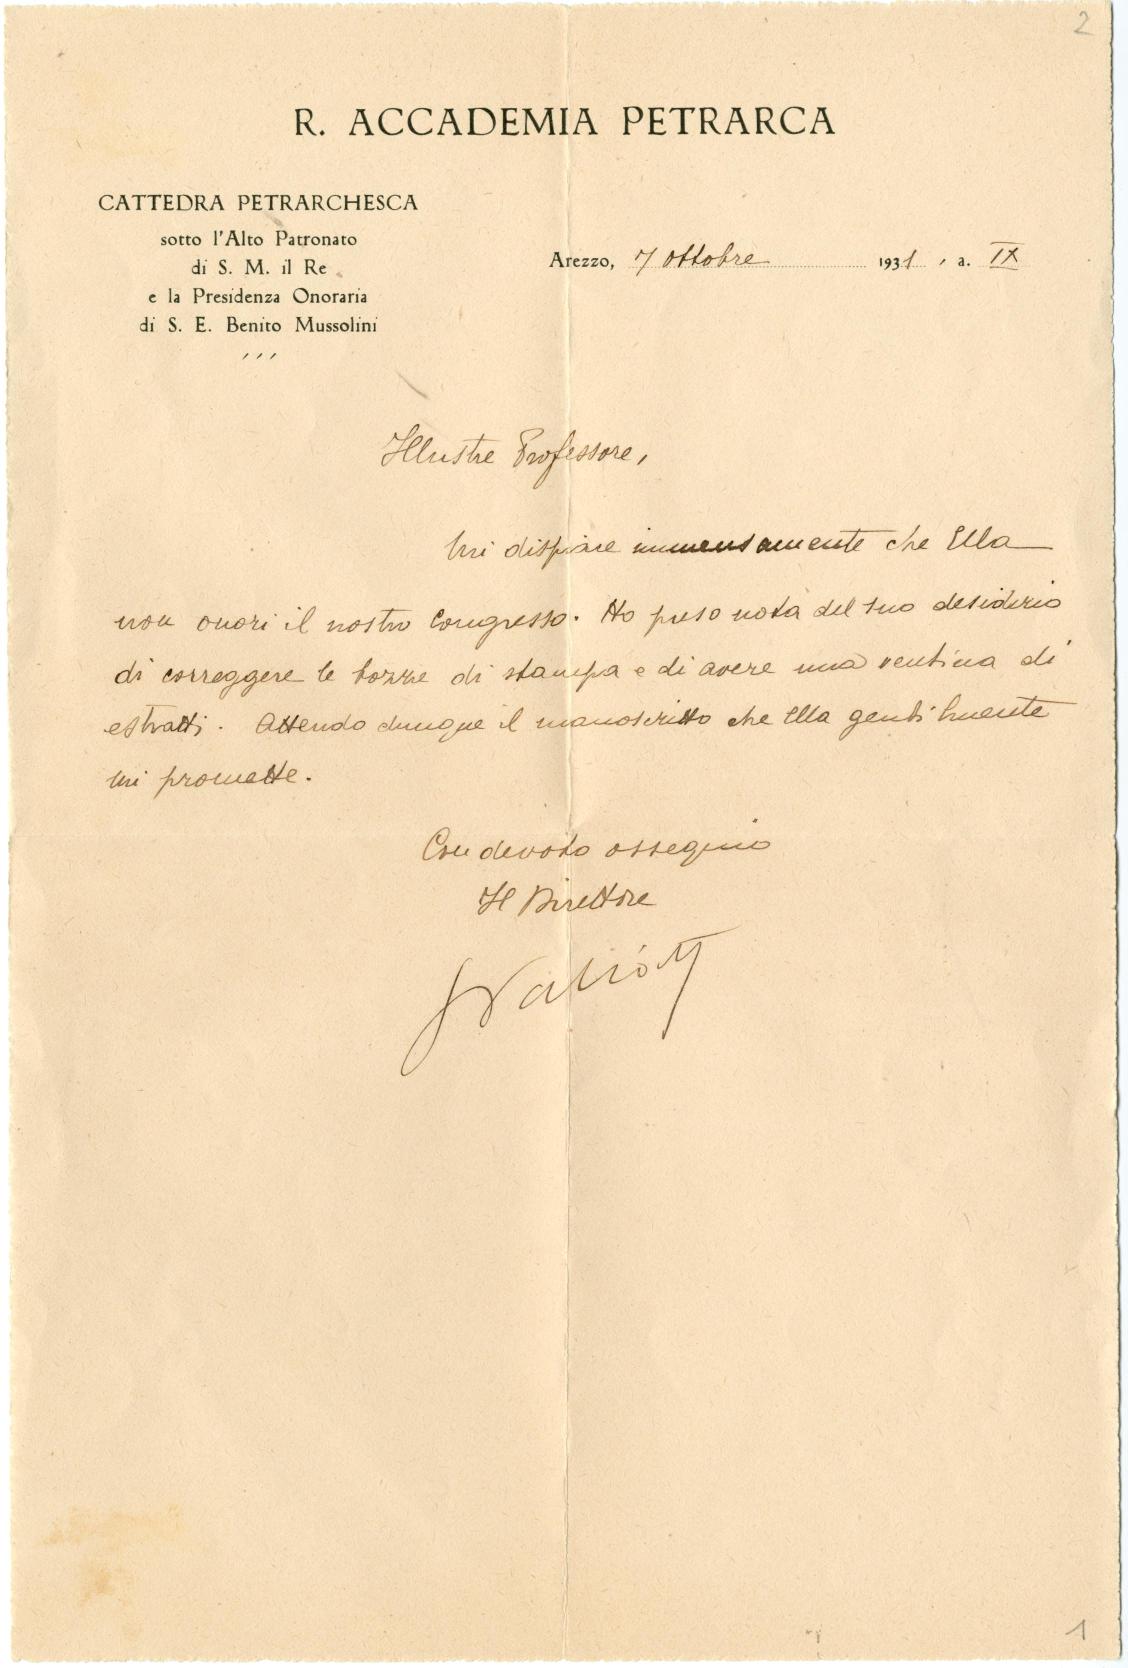 2
R. ACCADEMIA PETRARCA
CATTEDRA PETRARCHESCA
sotto l'Alto Patronato
di S. M. il Re
e la Presidenza Onoraria
di S. E. Benito Mussolini
Arezzo, 7 ottobre 1931, a. IX
Illustre Professore,
Mi dispiace immensamente che Ella
non onori il nostro Congresso. Ho preso nota del suo desiderio
di correggere le bozze di stampa e di avere una ventina di
estratti. Attendo dunque il manoscritto che Ella gentilmente
mi promette.
Con devoto ossequio
Il Direttore
1